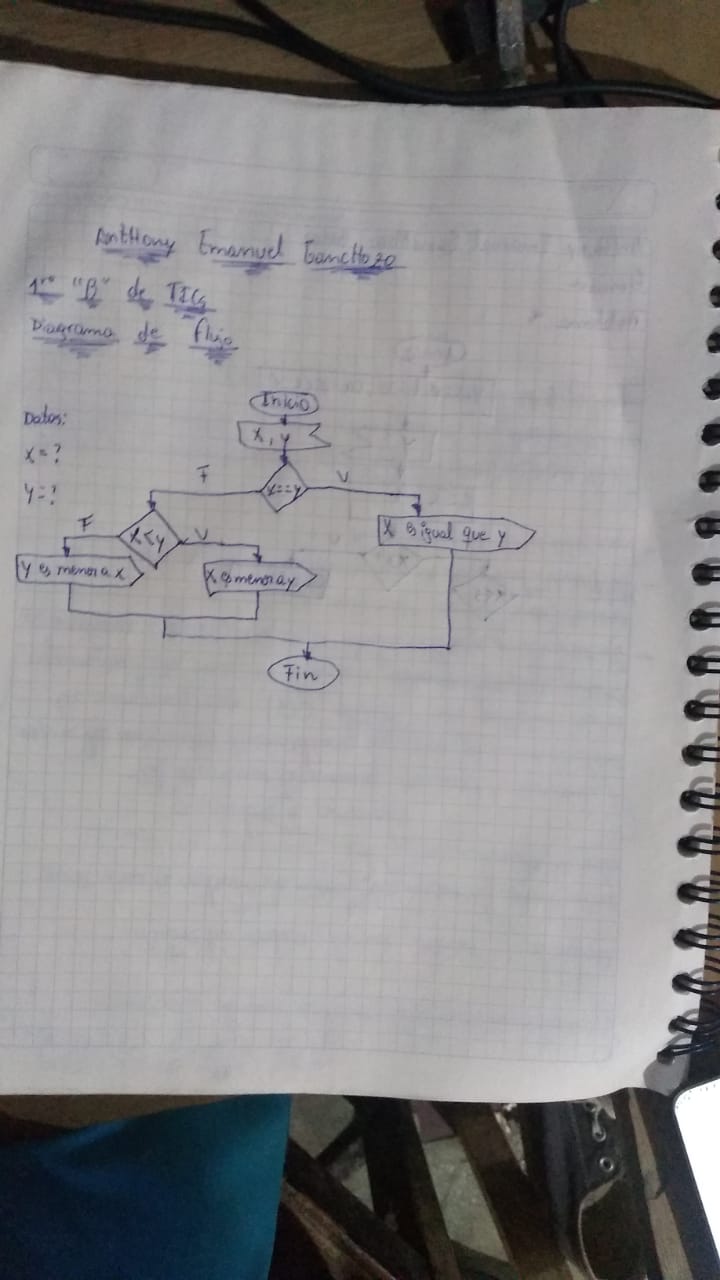 Anthony Emanuel Ganchozo
1ro "B" de TICs
Diagrama de flujo
Datos:
X=?
Y=?
Inicio
X, y
F
X==y
V
X es igual que y
F
X<y
V
y es menor a x
X es menor a y
Fin